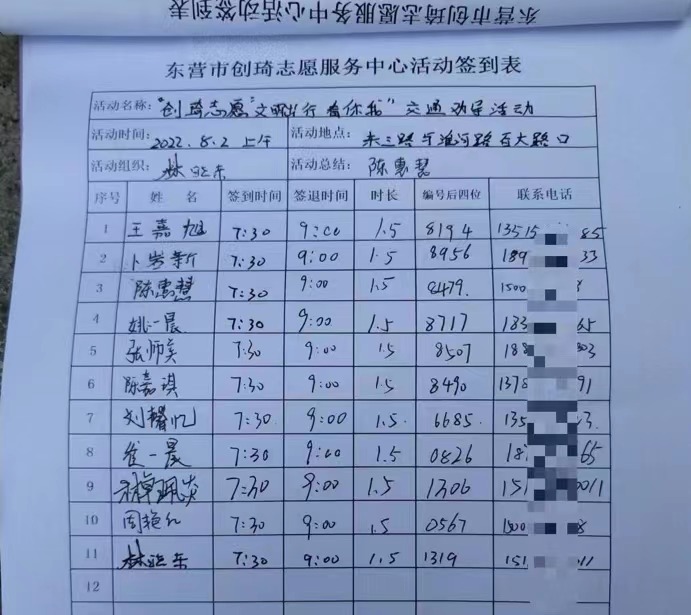 东营市创琦志愿服务中心活动签到表
东营市创琦志愿服务中心活动签到表
活动名称："创琦志愿"文明出行 有你我"交通劝导活动
活动时间：2022.8.2 上午 活动地点：东三路与淮河路百大路口
活动组织：林延东 活动总结：陈惠慧
序号 姓 名 签到时间 签退时间 时长 编号后四位 联系电话
1 王嘉旭 7:30 9:00 1.5 8194 13515 85
2 卜岩新 7:30 9:00 1.5 8956 189 33
3 陈惠慧 7:30 9:00 1.5 8479. 1500
4 姚一晨 7:30 9:00 1.5 8717 183 65
5 张师 7:30 9:00 1.5 8507 188 03
6 陈嘉琪 7:30 9:00 1.5 8490 1378 91
7 刘馨忆 7:30 9:00 1.5. 6685. 135 3.
8 崔一晨 7:30 9:00 1.5 0826 18 65
9 7:30 9:00 1.5 1306 151 0011
10 周艳红 7:30 9:00 1.5 0567 1500 8
11 林延东 7:30 9:00 1.5 1319 151 011
12